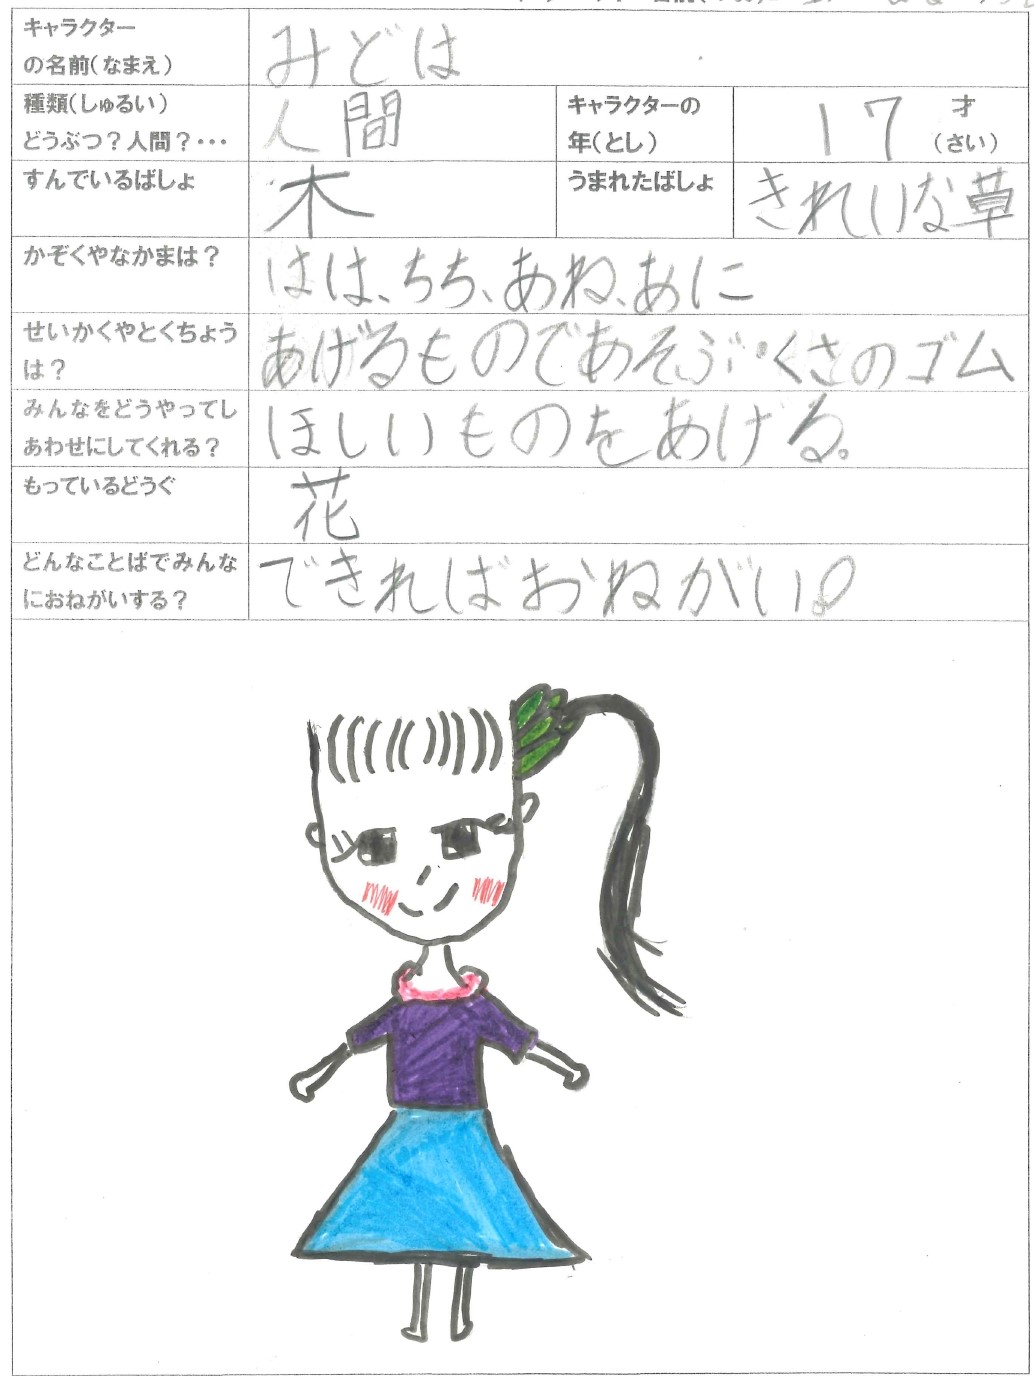 キャラクター
の名前(なまえ)
みどは
種類(しゅるい)
どうぶつ?人間?・・・
人間
キャラクターの
年(とし)
17 才
(さい)
すんでいるばしょ
木
うまれたばしょ
きれいな草
かぞくやなかまは?
はは、ちち、あね、あに
せいかくやとくちょう
は?
あげるものであそぶ・くさのゴム
みんなをどうやってし
あわせにしてくれる?
ほしいものをあげる。
もっているどうぐ
花
どんなことばでみんな
におねがいする?
できればおねがい!